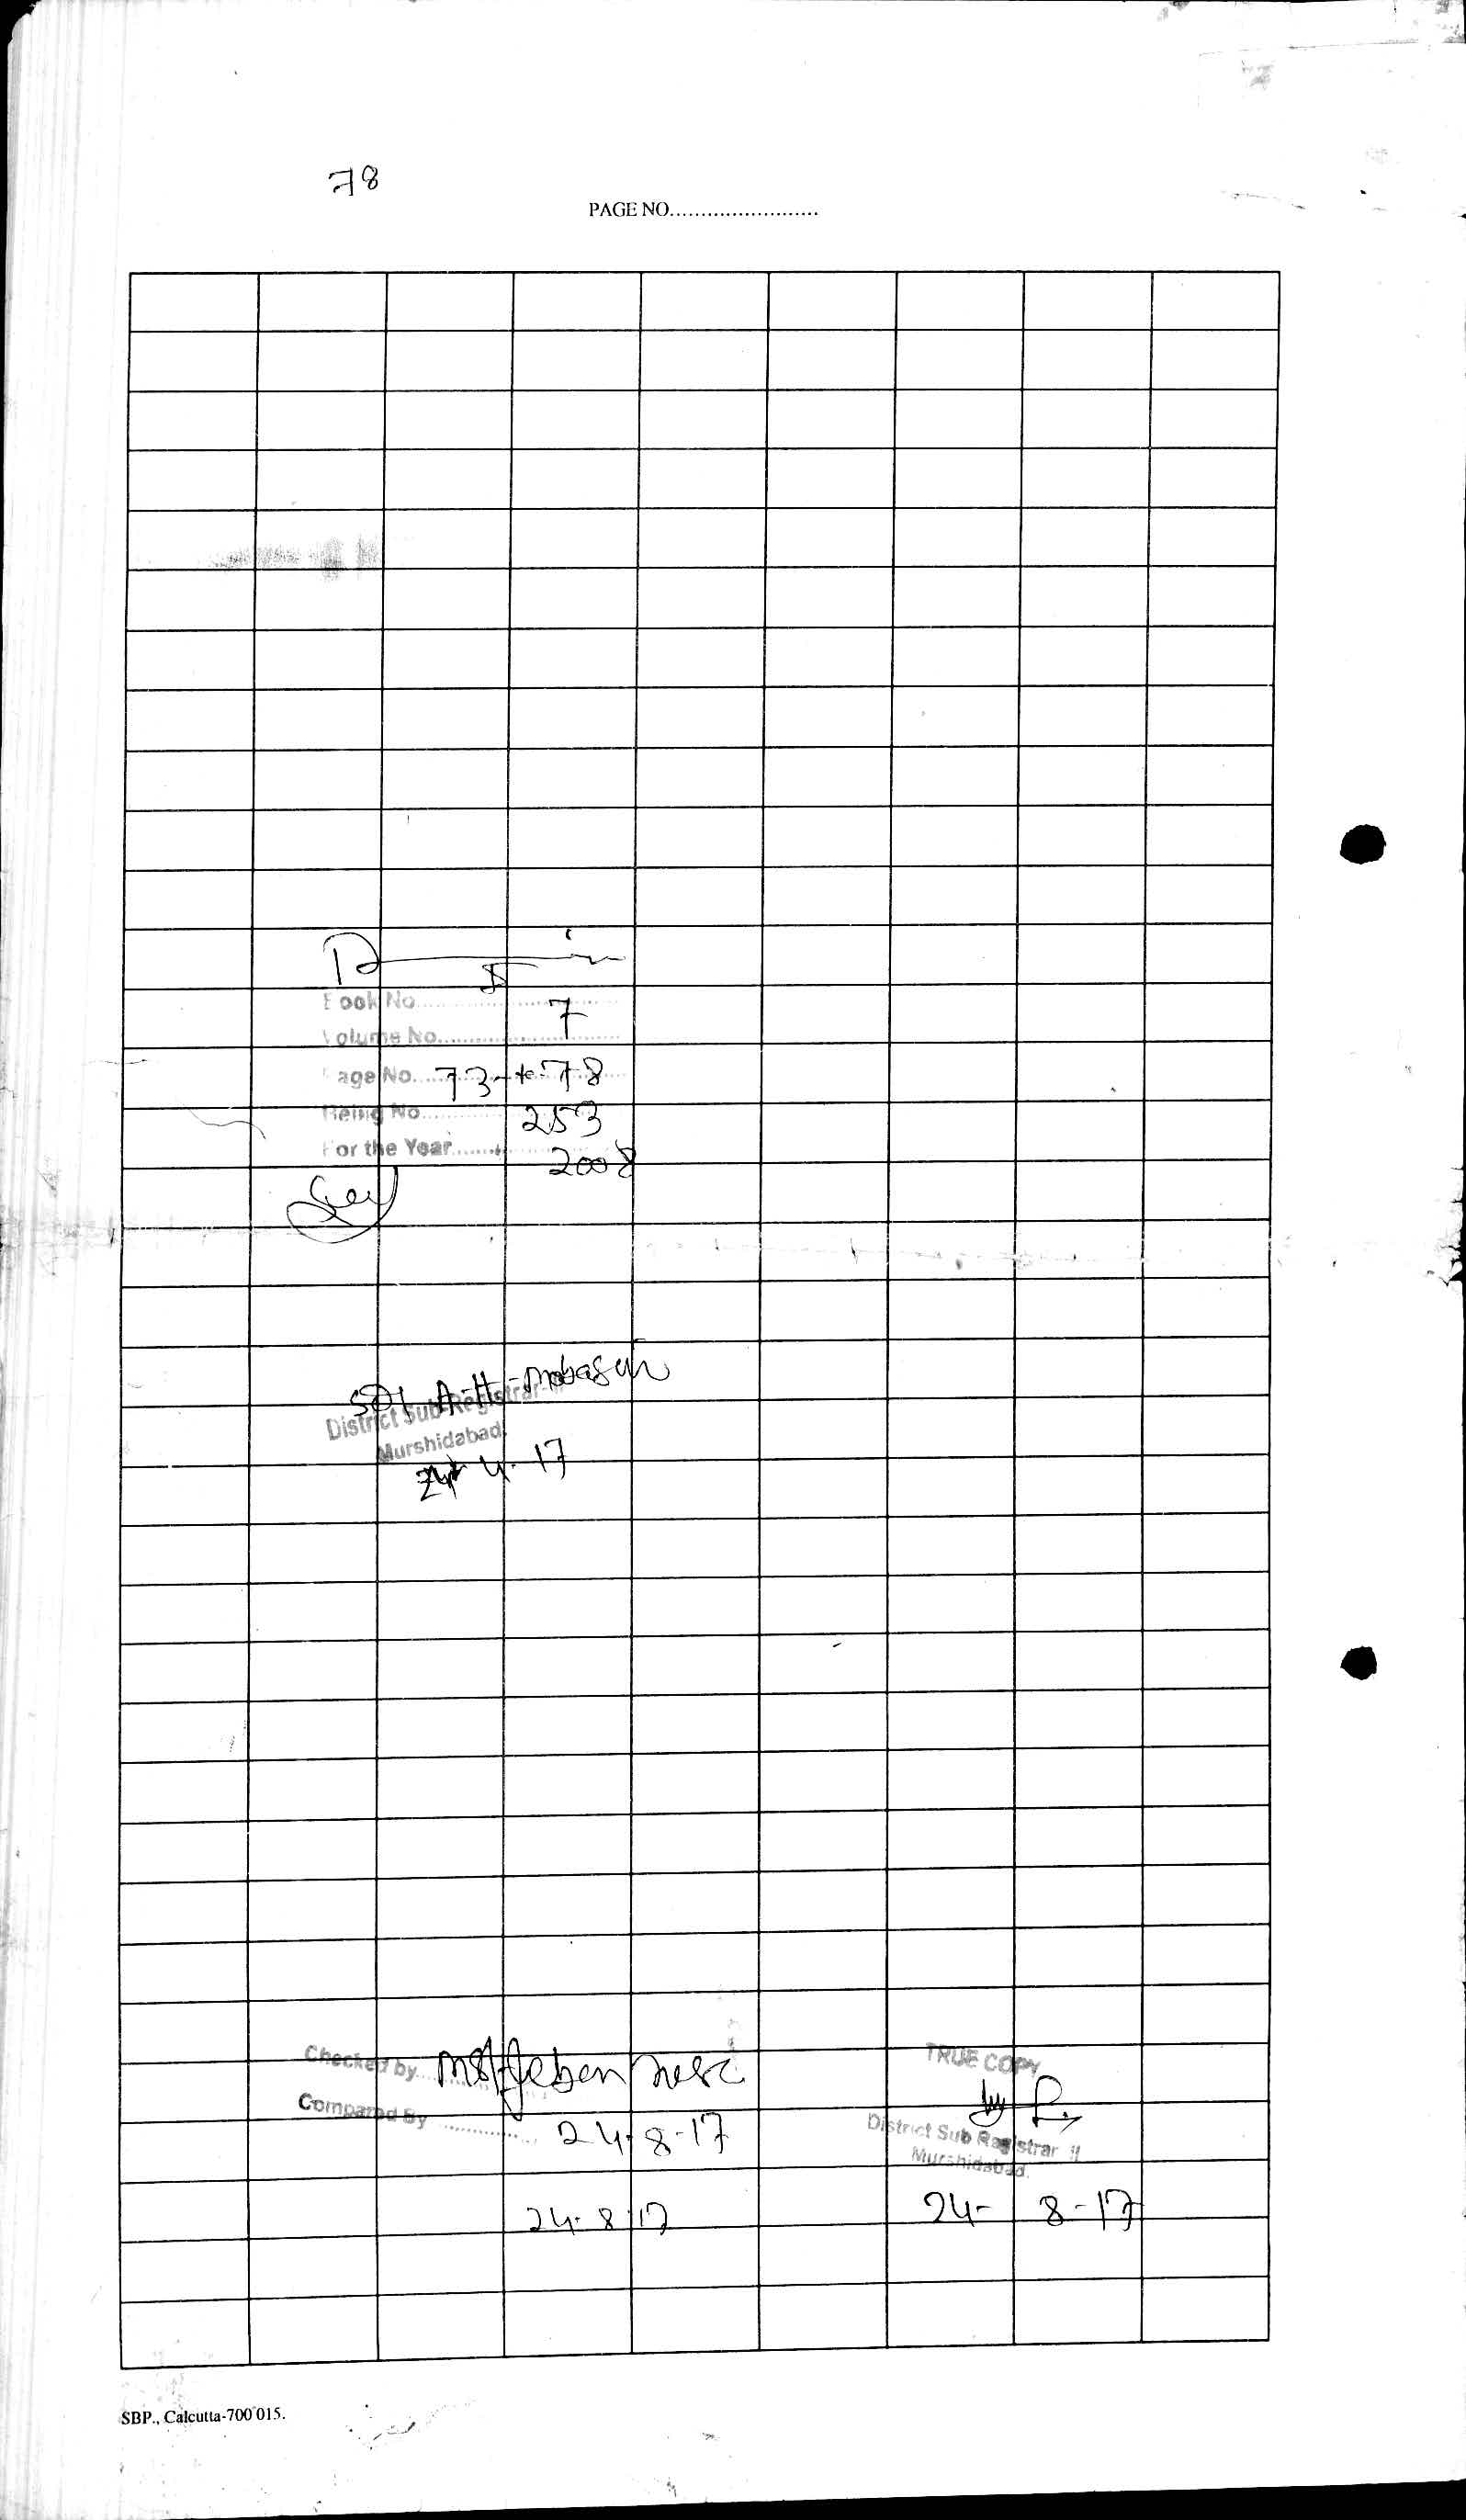 78
PAGE NO........................
Book No.
Volume No. 7
Page No. 73 to 78
Being No. 253
For the Year 2008
District Sub-Registrar-II
Murshidabad
4. 17
Checked by
Compared By
24-8-17
24-8-17
TRUE COPY
District Sub Registrar II
Murshidabad.
24-8-17
SBP., Calcutta-700 015.